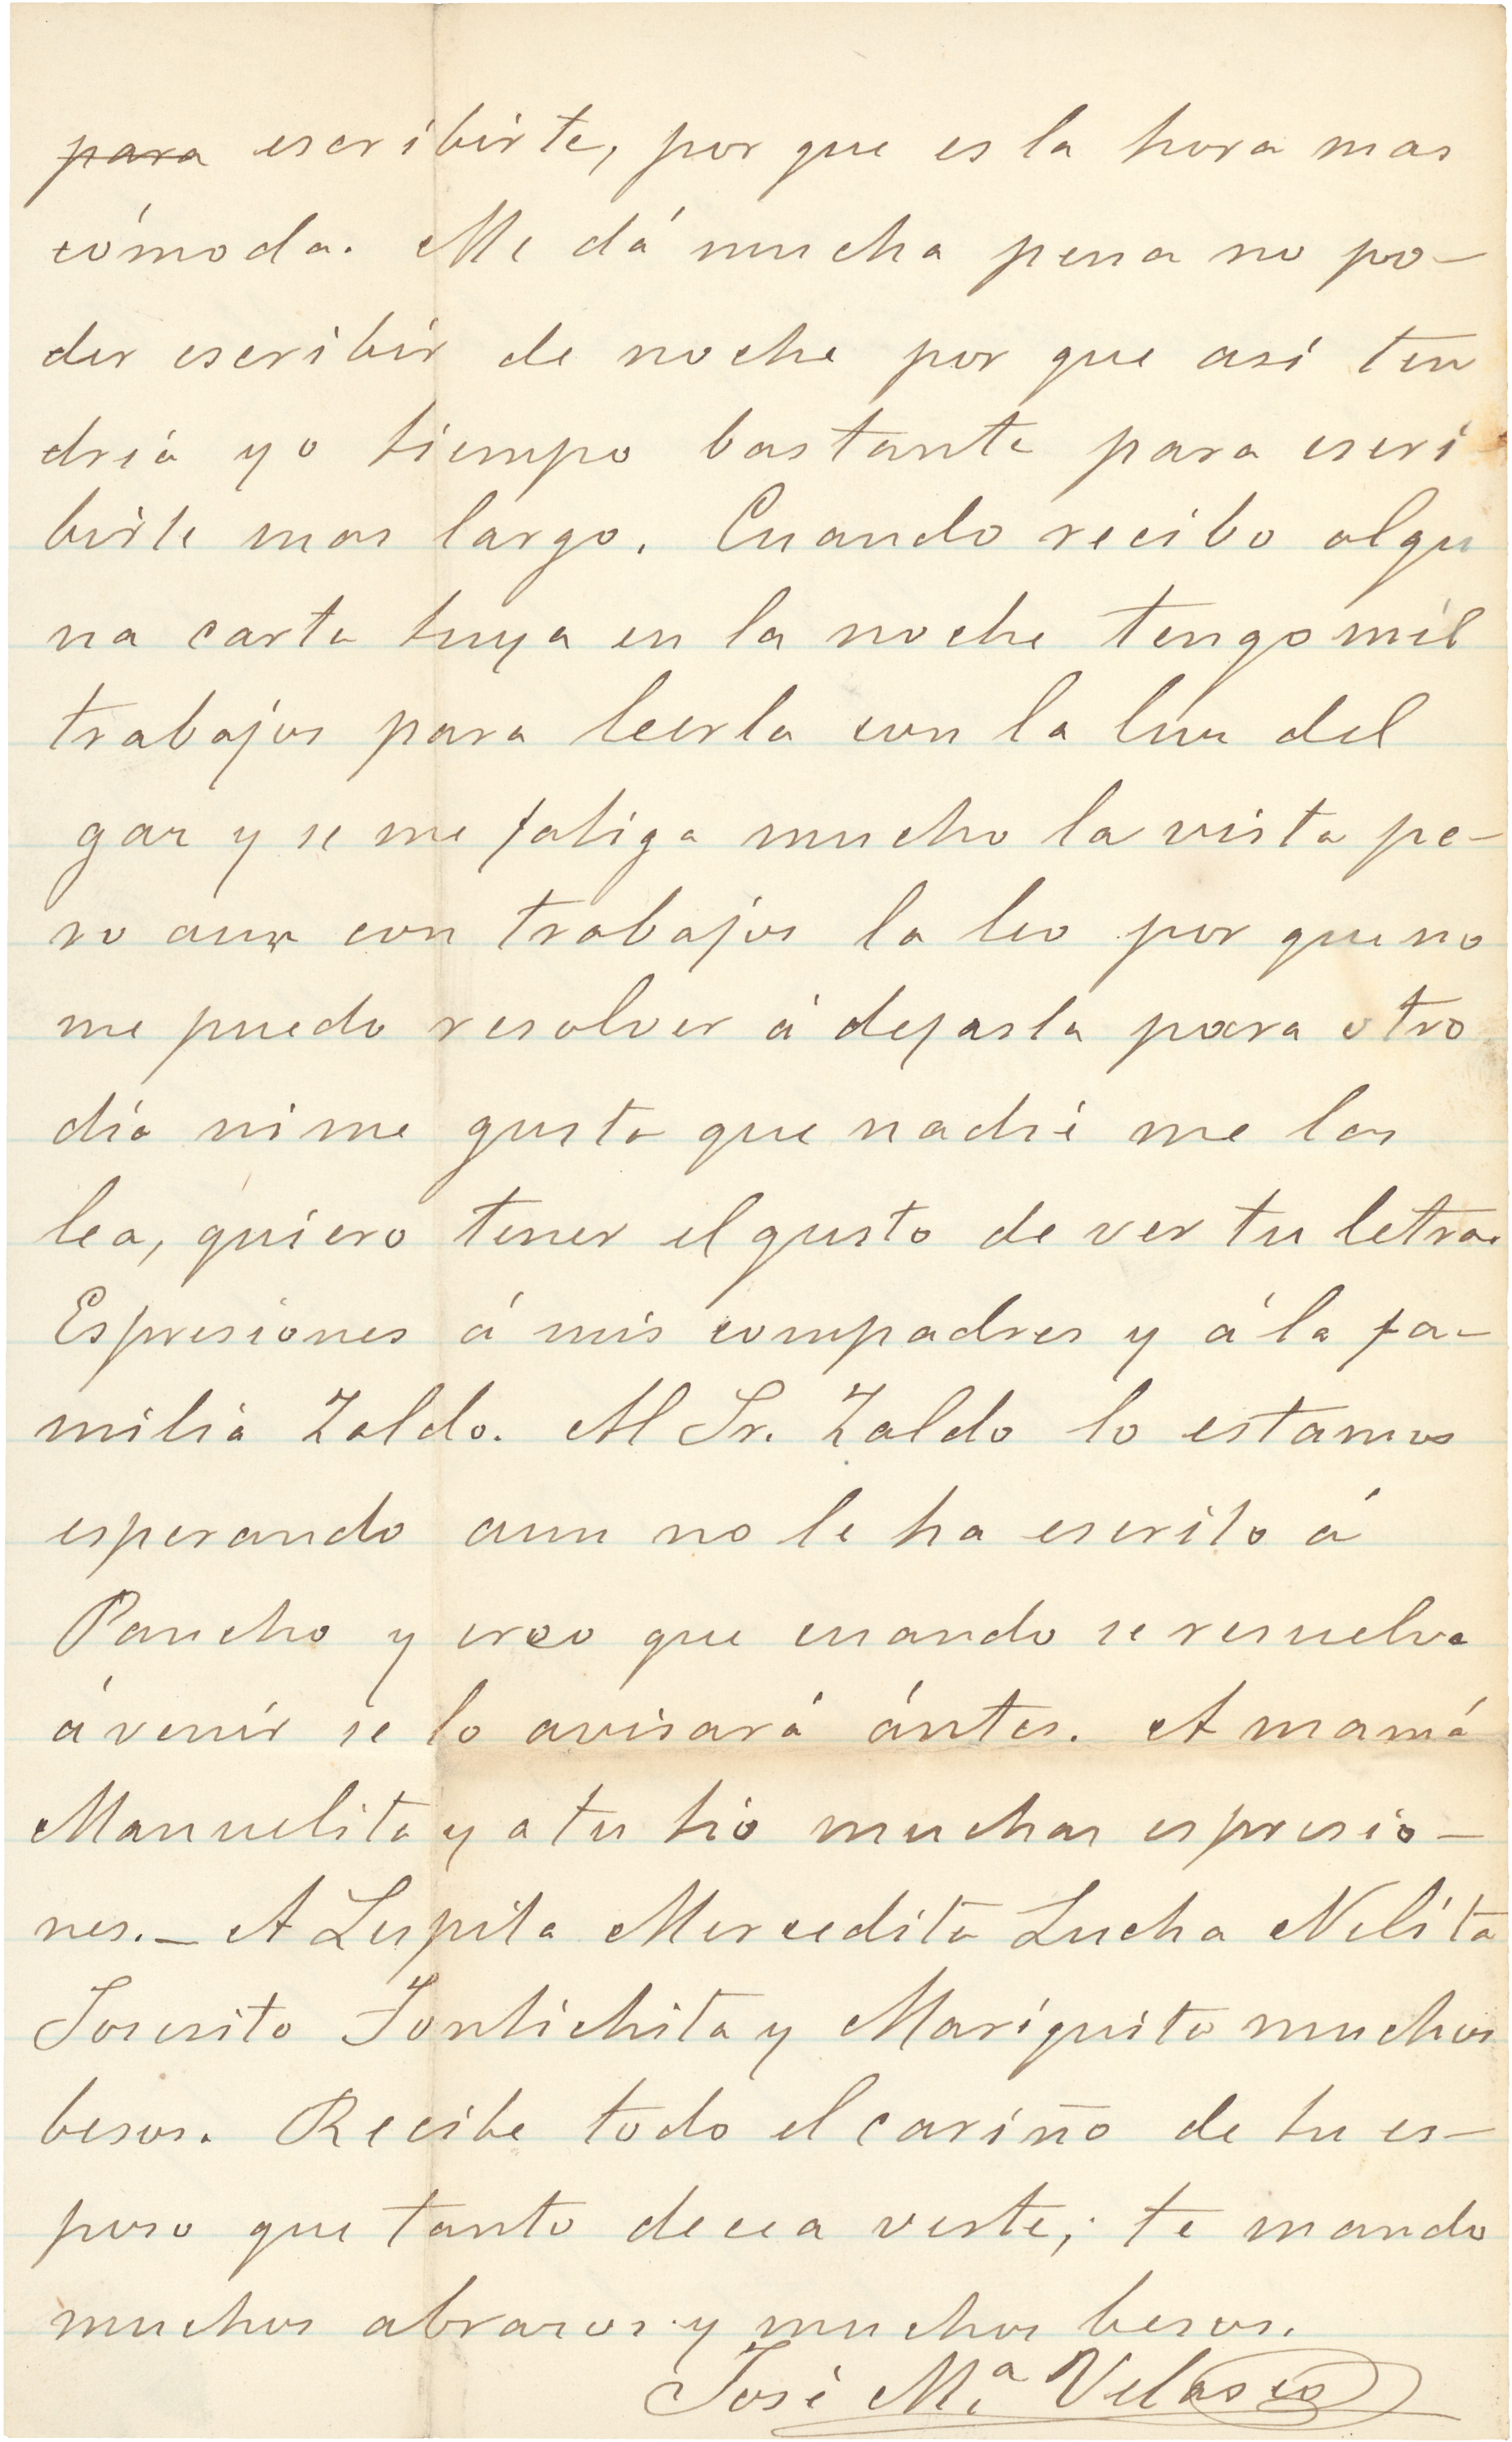 para escribirte, por que es la hora mas
cómoda. Me dá mucha pena no po-
der escribir de noche por que asi ten
dria yo tiempo bastante para escri
birte mas largo. Cuando recibo algu
na carta tuya en la noche tengo mil
trabajos para leerla con la luz del
gaz y se me fatiga mucho la vista pe-
ro aun con trabajos la leo por que no
me puedo resolver á dejarla para otro
dia ni me gusta que nadie me las
lea, quiero tener el gusto de ver tu letra.
Espresiones á mis compadres y á la fa-
milia Zaldo. Al Sr. Zaldo lo estamos
esperando aun no le ha escrito á
Pancho y creo que cuando se resuelva
á venir se lo avisará ántes. A mamá
Manuelita y a tu tio muchas espresio-
nes._ A Lupita Mercedita Lucha Nelita
Josesito y Mariquita muchos
besos. Recibe todo el cariño de tu es-
poso que tanto decea verte; te mando
muchos abrazos y muchos besos.
José Ma. Velasco